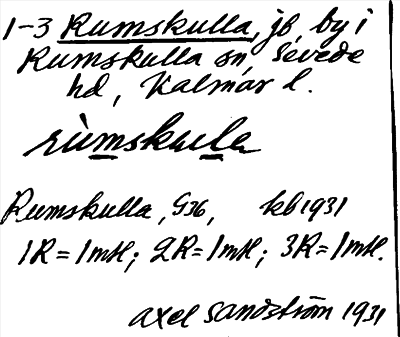 1-3 Rumskulla, jb, by i
Rumskulla sn, Sevede
hd, Kalmar l.
rùmskula
Rumskulla, G36, kb 1931
1R = 1 mtl; 2R = 1 mtl; 3R = 1 mtl.
Axel Sandström 1931